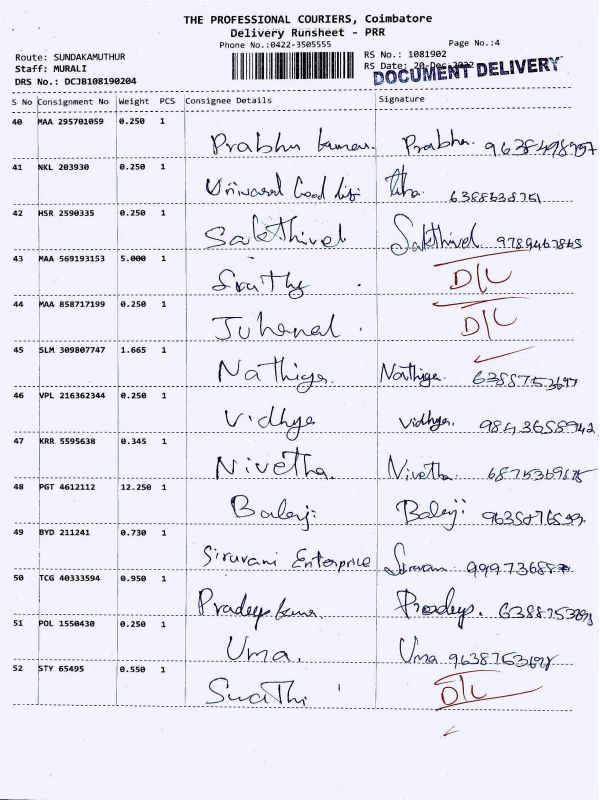 THE PROFESSIONAL COURIERS, Coimbatore
Delivery Runsheet - PRR
Phone No.:0422-3505555
Page No.:4
Route: SUNDAKAMUTHUR
RS No.: 1081902
Staff: MURALI
RS Date: 20-Dec-2022
DRS No.: DCJB108190204
DOCUMENT DELIVERY
S No Consignment No Weight PCS Consignee Details Signature
40 MAA 295701059 0.250 1 Prabhu kumar. Prabhu.
41 NKL 203930 0.250 1 6388638751
42 HSR 2590335 0.250 1 Sakthivel Sakthivel 9789467865
43 MAA 569193153 5.000 1 D/L
44 MAA 858717199 0.250 1 D/L
45 SLM 309807747 1.665 1 Nathiya. Nathiya.
46 VPL 216362344 0.250 1 Vidhya Vidhya. 9843658942
47 KRR 5595638 0.345 1 Nivetha. Nivetha.
48 PGT 4612112 12.250 1 Balaji Balaji
49 BYD 211241 0.730 1 Siruvani Enterprice
50 TCG 40333594 0.950 1 Pradeep kumar Pradeep.
51 POL 1550430 0.250 1 Uma. Uma
52 STY 65495 0.550 1 Swathi D/L